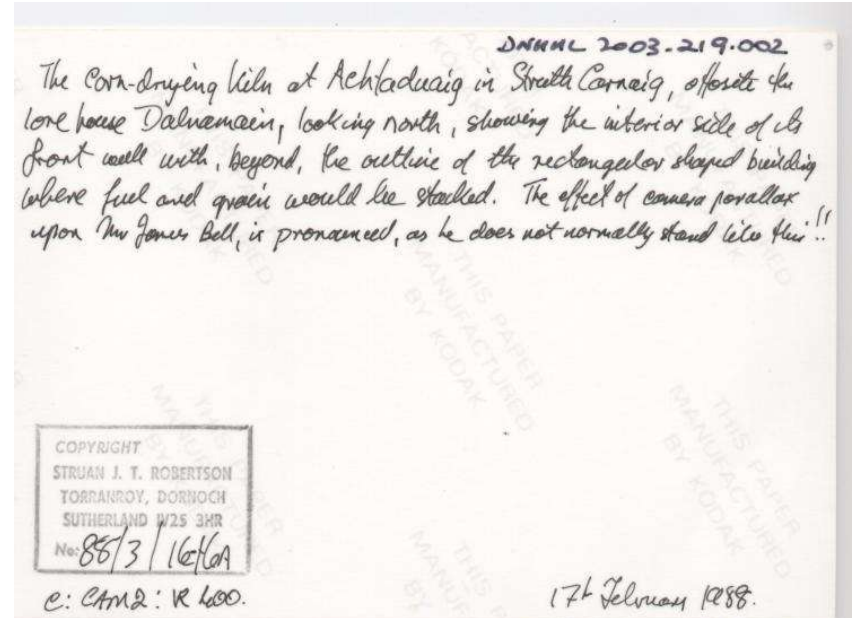 DNHHL 2003.219.002
The Corn-drying kiln at Achtaduaig in Strath Carnaig, opposite the
lone house Dalnamain, looking north, showing the interior side of its
front wall with, beyond, the outline of the rectangular shaped building
where fuel and grain would be stacked. The effect of camera parallax
upon Mr James Bell, is pronounced, as he does not normally stand like this!!
COPYRIGHT
STRUAN J. T. ROBERTSON
TORRANROY, DORNOCH
SUTHERLAND IV25 3HR
No: 88/3/
C: CAM2: R 400.
17th February 1988.
THIS PAPER
MANUFACTURED
BY KODAK